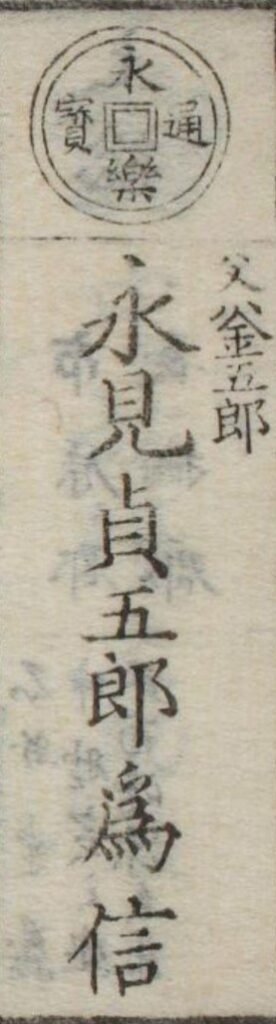 永樂通寶
父釜五郎
永見貞五郎爲信